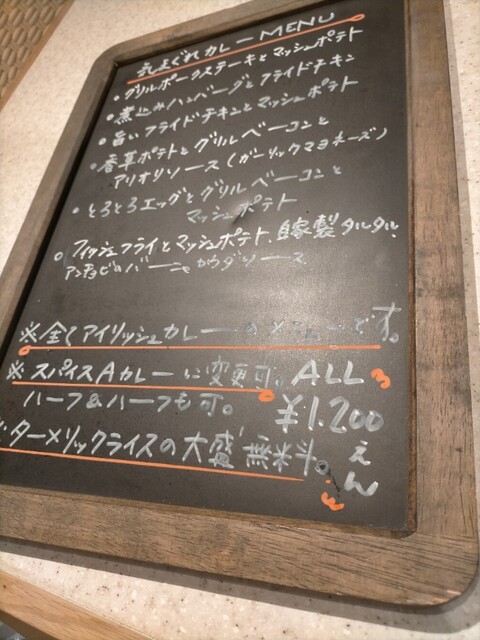 気まぐれカレーMENU
・グリルポークステーキとマッシュポテト
・煮込みハンバーグとフライドチキン
・旨いフライドチキンとマッシュポテト
・香草ポテトとグリルベーコンと
アリオリソース(ガーリックマヨネーズ)
・とろとろエッグとグリルベーコンと
マッシュポテト
○フィッシュフライとマッシュポテト、自家製タルタル、
アンチョビのバーニャカウダソース
※全てアイリッシュカレーのメニューです。
※スパイスAカレーに変更可。ALL
ハーフ&ハーフも可。 ¥1.200
ターメリックライスの大盛無料。えん